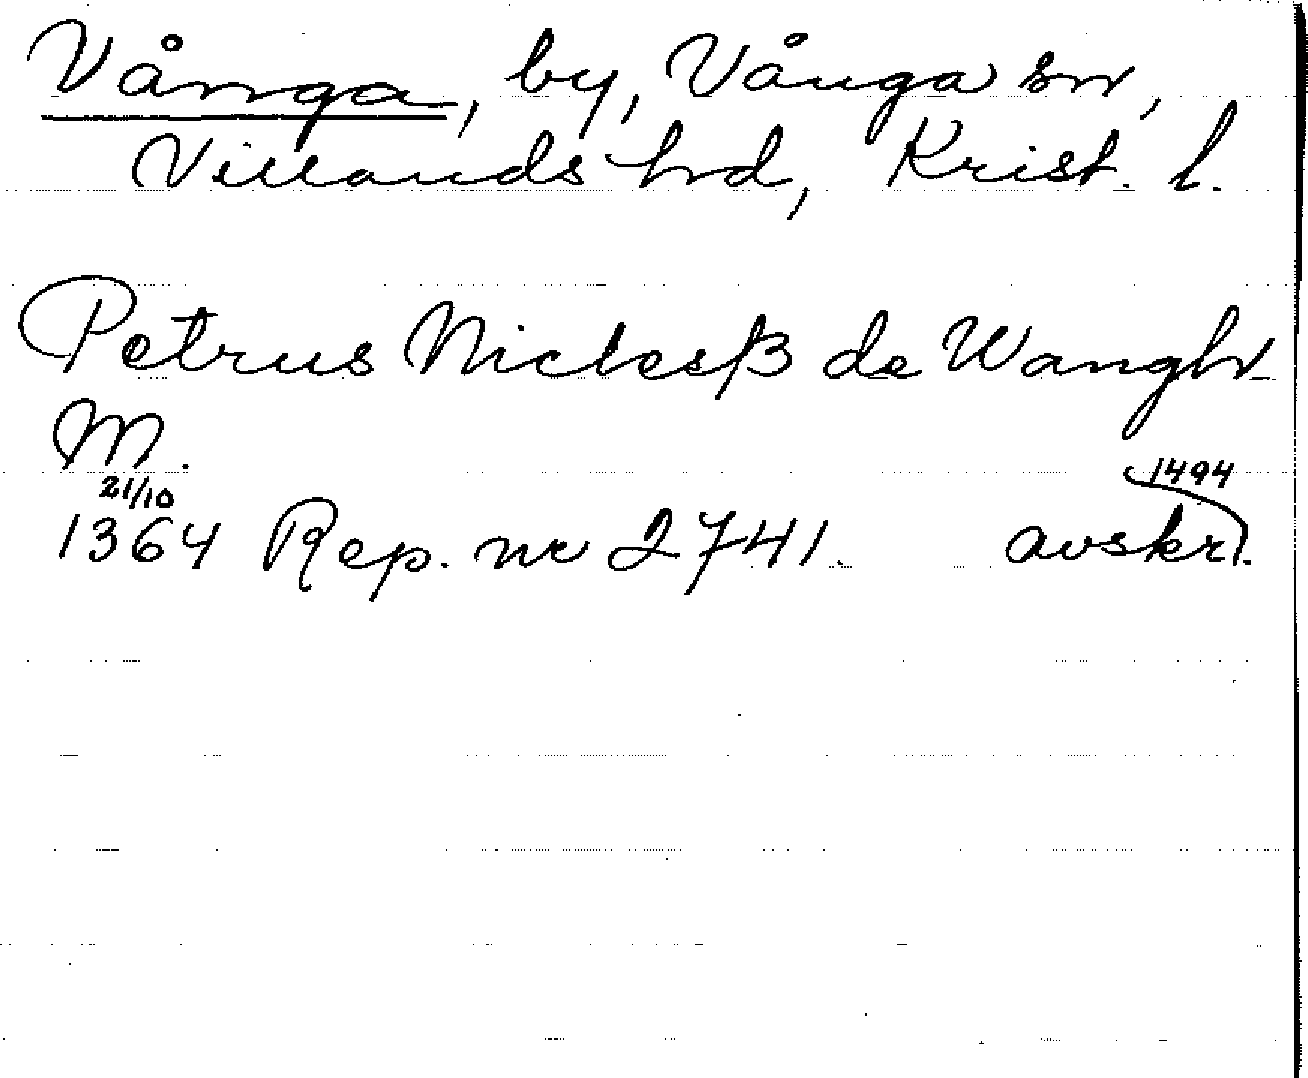 Vånga, by, Vånga sn,
Villands hd, Krist. l.
Petrus Niclesß de Wangh
M.
21/10 1494
1364 Rep. nr 2741. avskr.